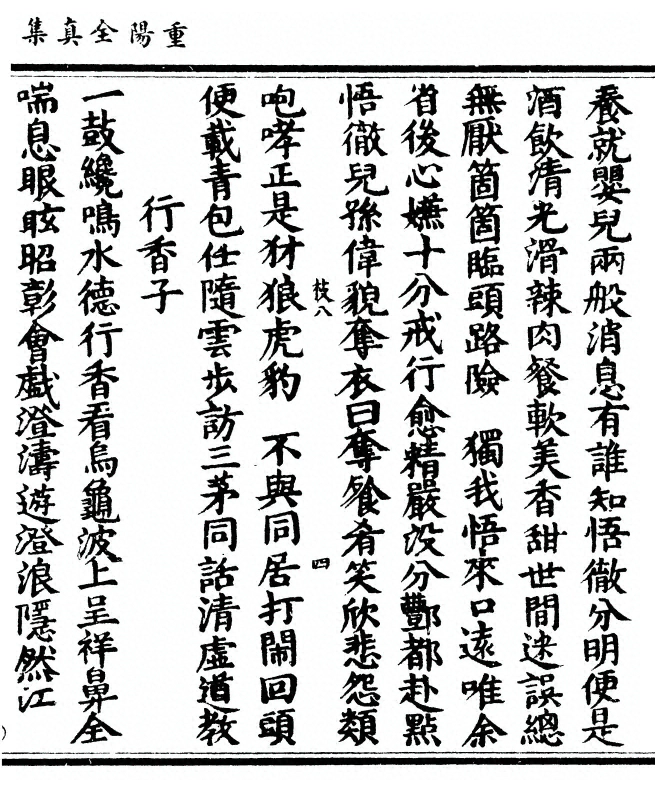 重陽全真集
養就嬰兒兩般消息有誰知悟徹分明便是
酒飲清光滑辣肉餐軟美香甜世間迷誤總
無厭箇箇臨頭路險　獨我悟來口遠唯余
省後心嫌十分戒行愈精嚴没分酆都赴點
悟徹兒孫偉貌奪衣曰奪餐肴笑欣悲怨類
咆哮正是犲狼虎豹　不與同居打鬧回頭
便載青包任隨雲步訪三茅同話清虛道教
行香子
一鼓纔鳴水德行香看烏龜波上呈祥鼻全
喘息眼眩昭彰會戲澄濤遊澄浪隱然江
枝八
四